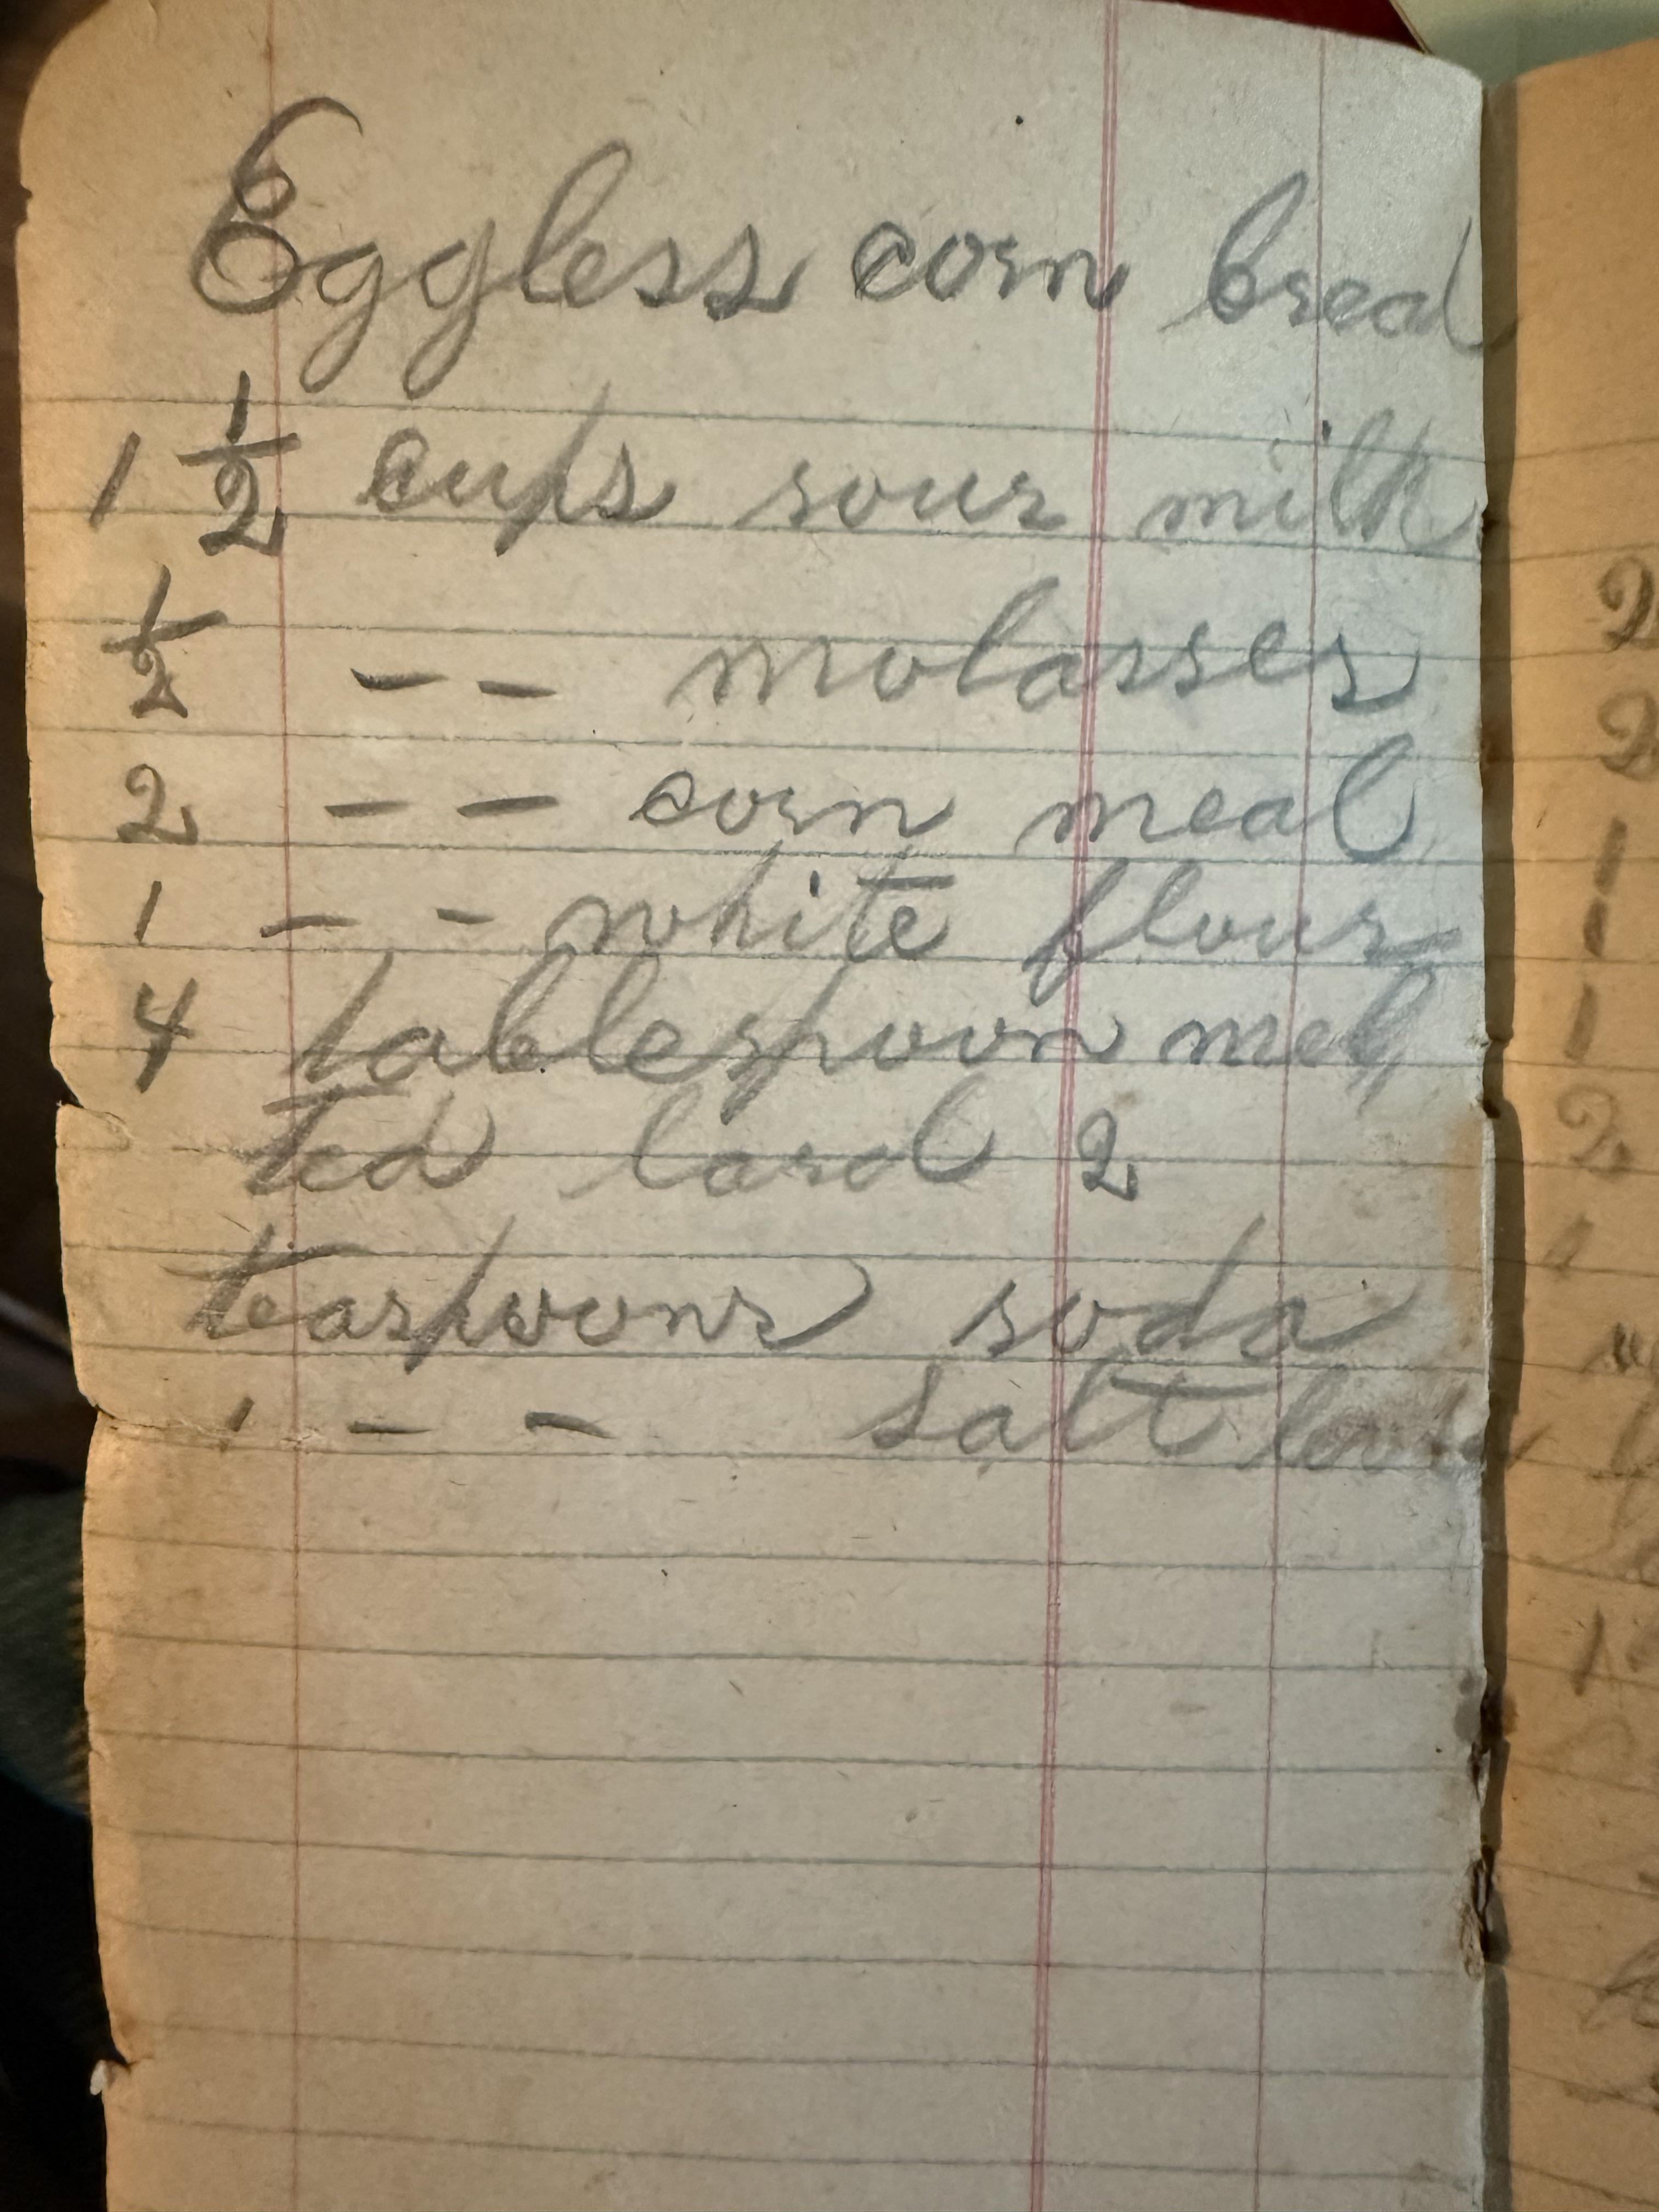 Eggless corn bread
1 1/2 cups sour milk
1/2 -- molasses
2 -- corn meal
1 -- white flour
4 tablespoon mel
ted lard 2
teaspoons soda
1 -- salt
2
2
1
1
1
2
1